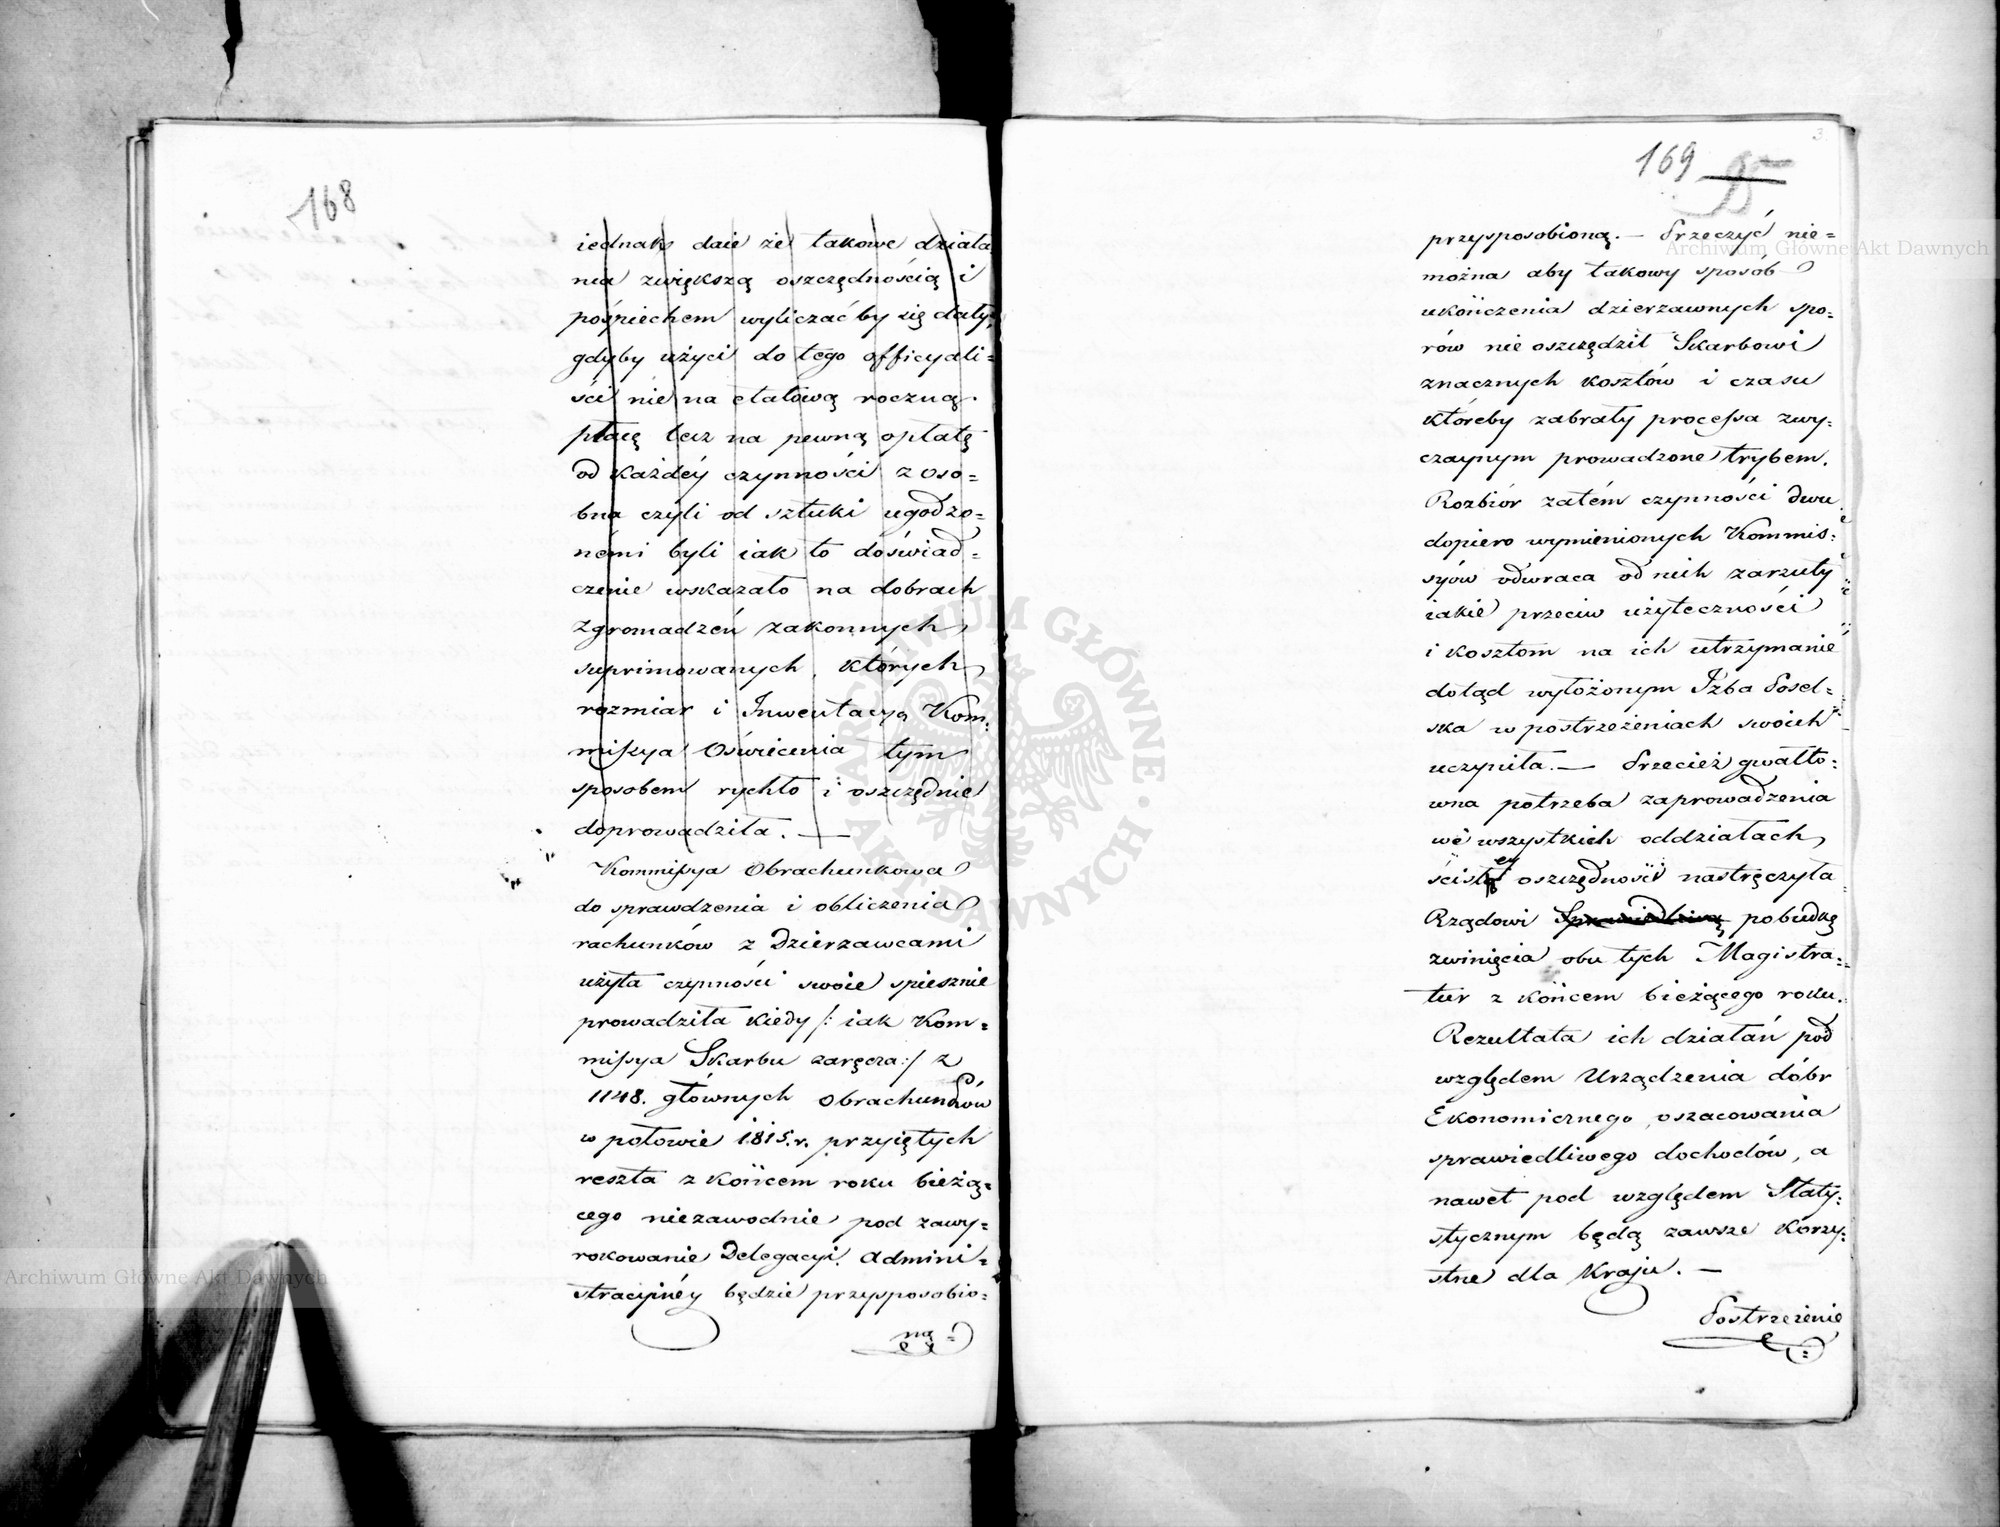 168
iednak daie że takowe działa
nia zwiększą oszczędnością i
pośpiechem wyliczać by się dały,
gdyby użyci do tego officyali=
ści nie na etatową roczną
płacę lecz na pewną opłatę
od każdéy czynności z oso=
bna czyli od sztuki ugodzo=
némi byli iak to doświad=
czenie wskazało na dobrach
zgromadzeń zakonnych
suprimowanych, których
rozmiar i Inwentacyą Kom=
missya Oświecenia tym
sposobem rychło i oszczędnie
doprowadziła. —
Kommissya Obrachunkowa
do sprawdzenia i obliczenia
rachunków z Dzierzawcami
użyta czynności swoie spiesznie
prowadziła kiedy /: iak Kom=
missya Skarbu zaręcza :/ z
1148. głównych obrachunków
w połowie 1815. r. przyiętych
reszta z końcem roku bieżą=
cego niezawodnie pod zawy=
rokowanie Delegacyi Admini=
stracyinéy będzie przysposobio=
ną =
3
169 95
przysposobioną. — Przeczyć nie=
można aby takowy sposób
ukończenia dzierzawnych spo=
rów nie oszczędził Skarbowi
znacznych kosztów i czasu
któreby zabrały processa zwy=
czaynym prowadzone trybem.
Rozbiór zatém czynności dwu
dopiero wymienionych Kommis=
syów odwraca od nich zarzuty
iakie przeciw użyteczności
i kosztom na ich utrzymanie
dotąd wyłożonym Izba Posel=
ska w postrzeżeniach swoich
uczyniła. — Przecież gwałto=
wna potrzeba zaprowadzenia
we wszystkich oddziałach
ścisłey oszczędności nastręczyła
Rządowi Sprawiedliwą pobudkę
zwinięcia obu tych Magistra=
tur z końcem bieżącego roku.
Rezultata ich działań pod
względem Urządzenia dóbr
Ekonomicznego, oszacowania
sprawiedliwego dochodów, a
nawet pod względem Staty=
stycznym będą zawsze korzy=
stne dla Kraju. —
Postrzeżenie
Archiwum Główne Akt Dawnych
Archiwum Główne Akt Dawnych
ARCHIWUM GŁÓWNE · AKT DAWNYCH ·